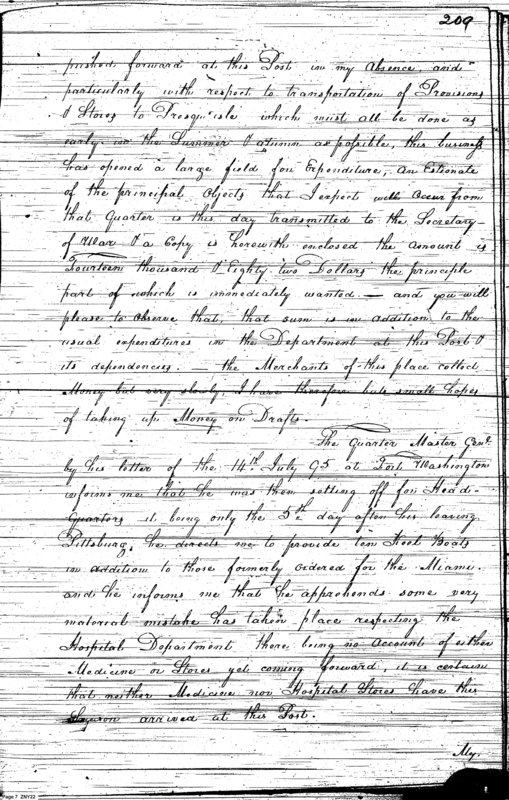 209
pushed forward at this Post in my Absence and
particularly with respect to transportation of Provisions
& Stores to Presqu'isle which must all be done as
early in the Summer & atumn as possible, this business
has opened a large field for Expenditure, an Estimate
of the principal Objects that I expect will Occur from
that Quarter is this day transmitted to the Secretary
of War & a Copy is herewith enclosed the amount is
Fourteen thousand & Eighty two Dollars the principle
part of which is immediately wanted. — and you will
please to observe that, that sum is in addition to the
usual expenditures in the Department at this Post &
its dependencies. — the Merchants of this place collect
Money but very slowly, I have therefore but small hopes
of taking up Money on Drafts.
The Quarter Master Genl.
by his letter of the 14th July 95 at Fort Washington
informs me that he was then setting off for Head-
Quarters it being only the 5th day after his leaving
Pittsburg, he directs me to provide ten Keel Boats
in addition to those formerly ordered for the Miami.
and he informs me that he apprehends some very
material mistake has taken place respecting the
Hospital Department there being no account of either
Medicine or Stores yet coming forward, it is certain
that neither Medicine nor Hospital Stores have this
Season arrived at this Post.
My.
Page 7 ZNY22